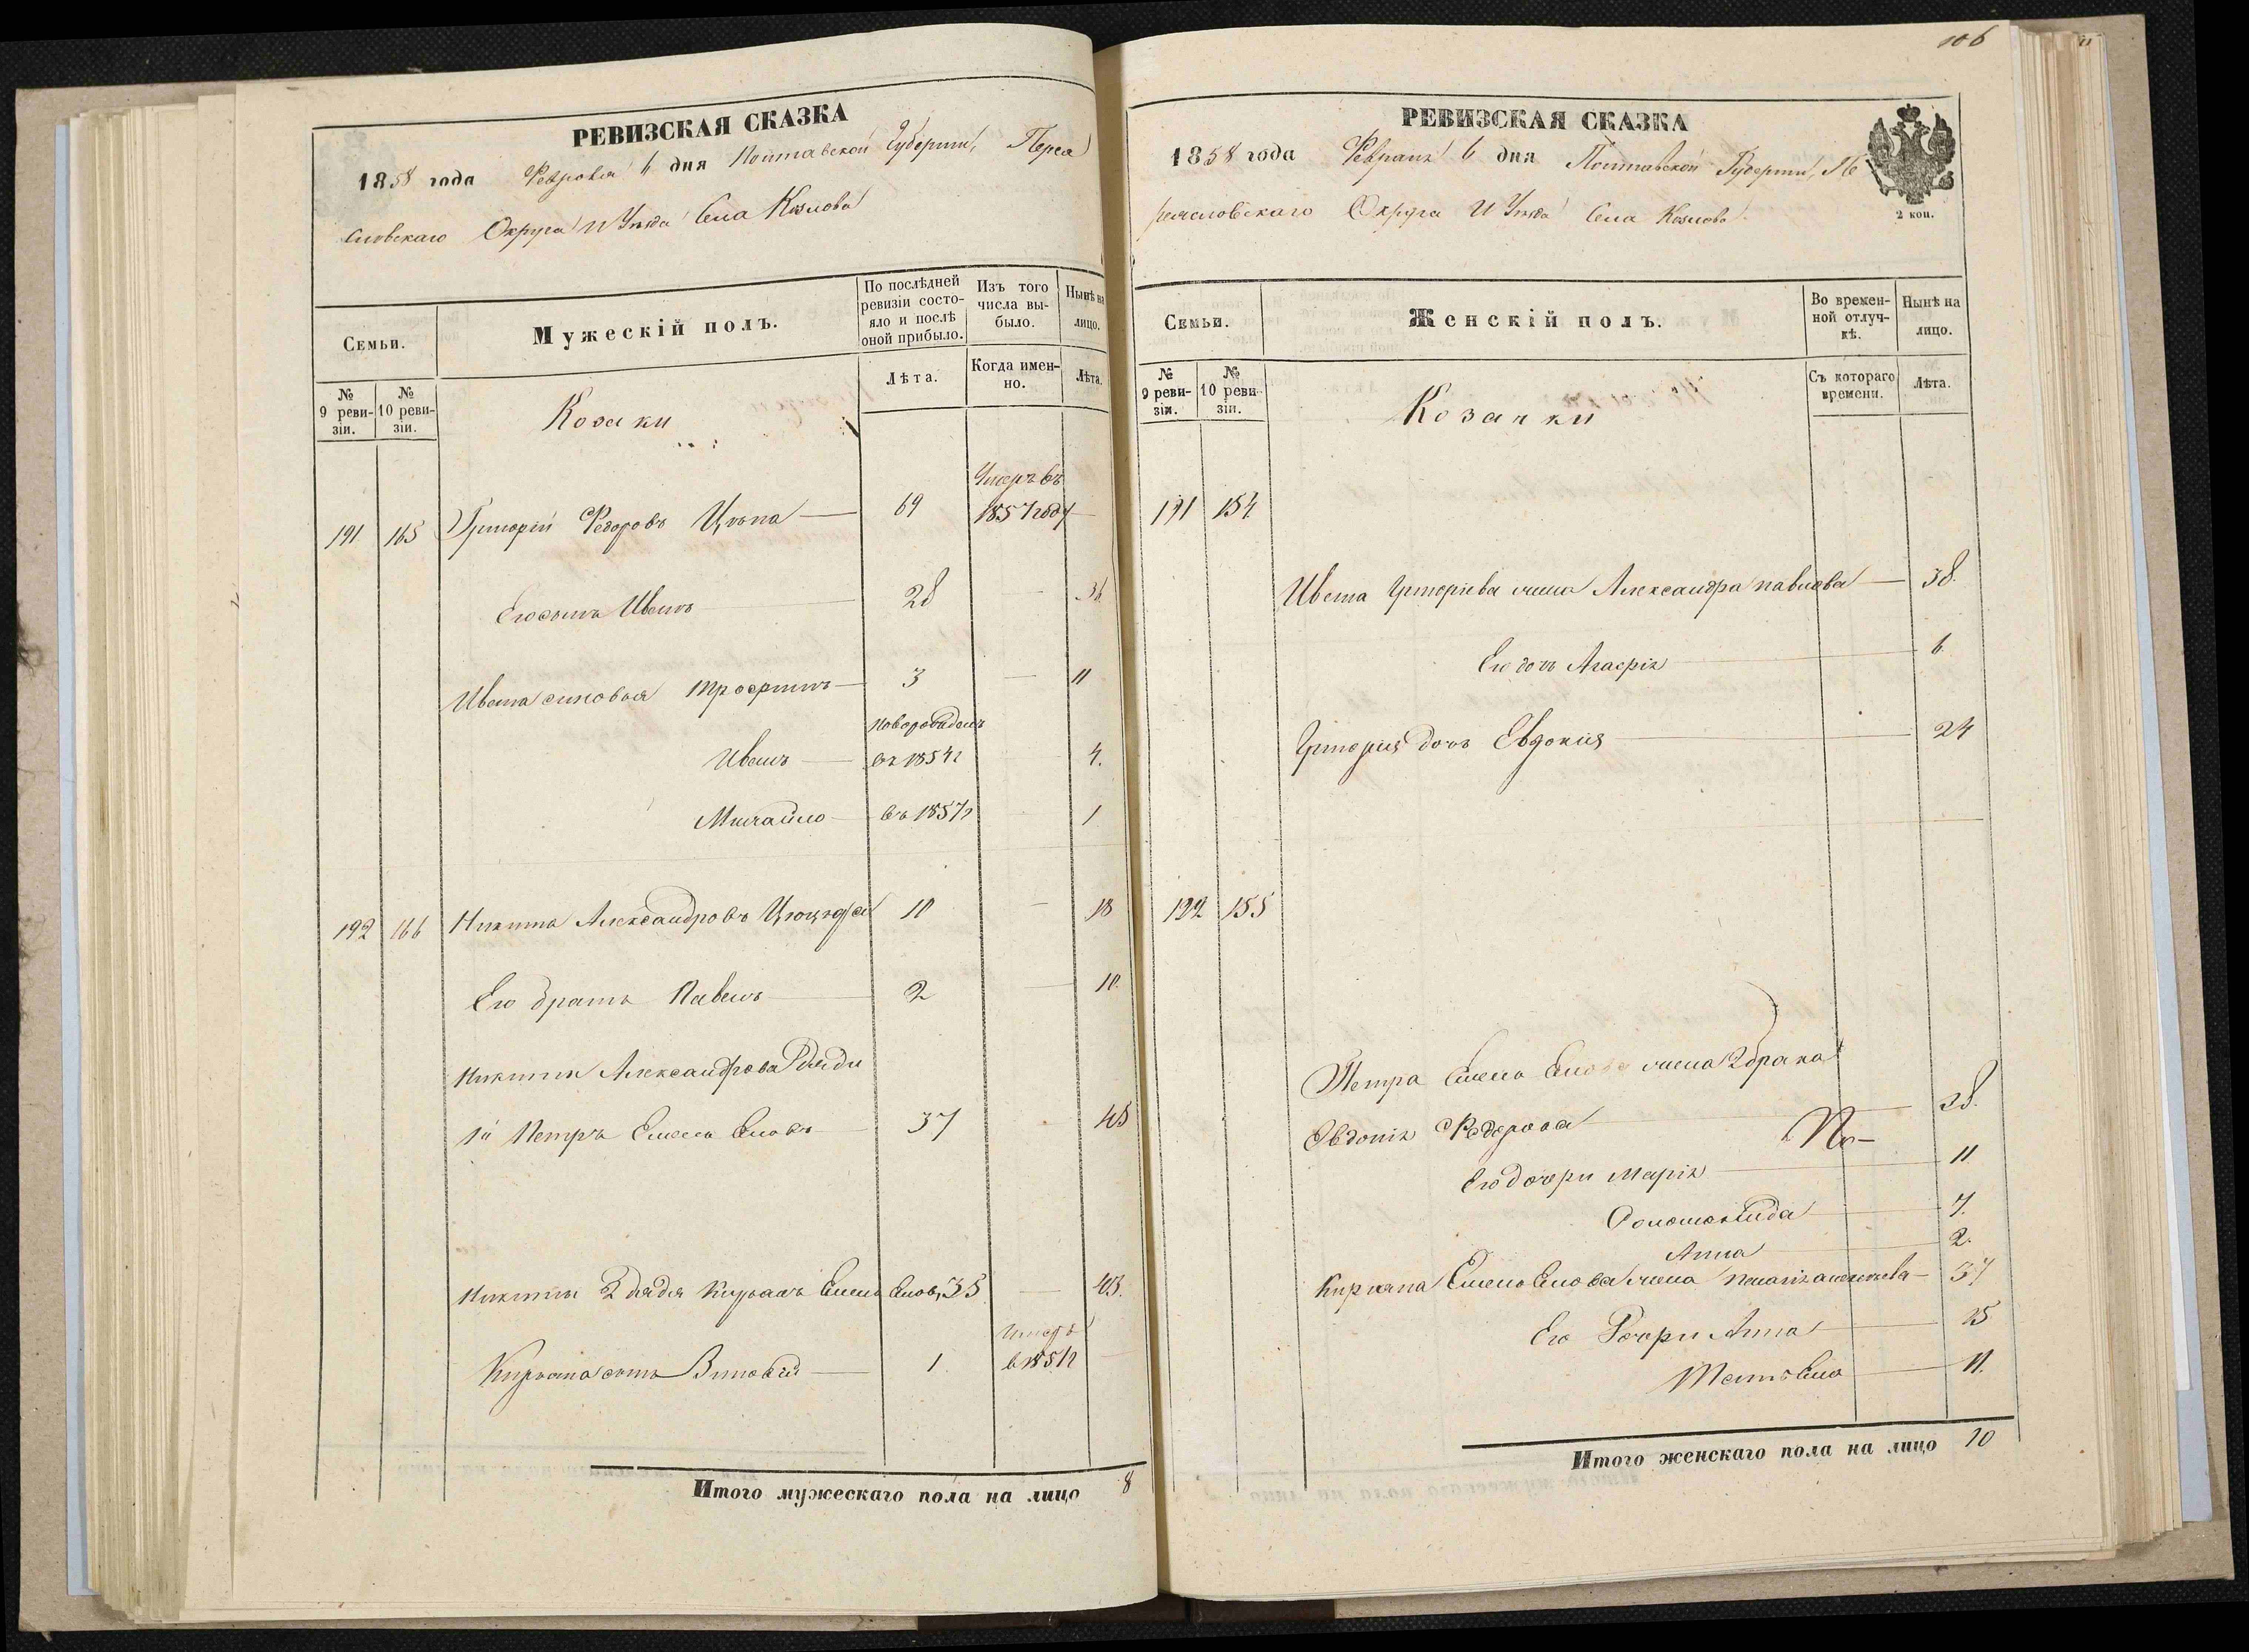 РЕВИЗСКАЯ СКАЗКА
1858 года Февраля 6 дня Полтавской Губернии, Переа
словскаго Округа и Уезда Села Козлова
Семьи.
Мужескій полъ.
По послѣдней ревизіи состояло и послѣ оной прибыло.
Изъ того числа выбыло.
Нынѣ на лицо.
№ 9 ревизіи.
№ 10 ревизіи.
Козаки
Лѣта.
Когда именно.
Лѣта.
191 165 Григорій Федоровъ Цюпа 69 Умеръ въ 1857 году
Его сынъ Иванъ 28 36
Ивана сыновья Трофимъ 3 11
Иванъ новорожденъ въ 1854 г 4.
Михайло въ 1857 г 1
192 166 Никита Александровъ 10 18
Его братъ Павелъ 2 10.
Никиты Александрова дяди
1й Петръ Емельяновъ 37 45
Никиты 2 дядя Кирьанъ Емельяновъ 35 43.
Кирьана сынъ Зиновій 1 умеръ в 1851 г
Итого мужескаго пола на лицо 8
106
РЕВИЗСКАЯ СКАЗКА
1858 года Февраля 6 дня Полтавской Губернии, Пе
реясловскаго Округа и Уезда Села Козлова
2 коп.
Семьи.
Женскій полъ.
Во временной отлучкѣ.
Нынѣ на лицо.
№ 9 ревизіи.
№ 10 ревизіи.
Козачки
Съ котораго времени.
Лѣта.
191 154
Ивана Григоріева жена Александра Павлова 38.
Его дочь Агафія 6
Григорія дочь Евдокія 24
192 155
Петра Емельянова жена 2 брака
Евдокія Федорова 28.
Его дочери Марія 11
7.
Анна 2.
Кирьяна Емельянова жена 37
Его дочери Анна 15
Татьяна 11.
Итого женскаго пола на лицо 10